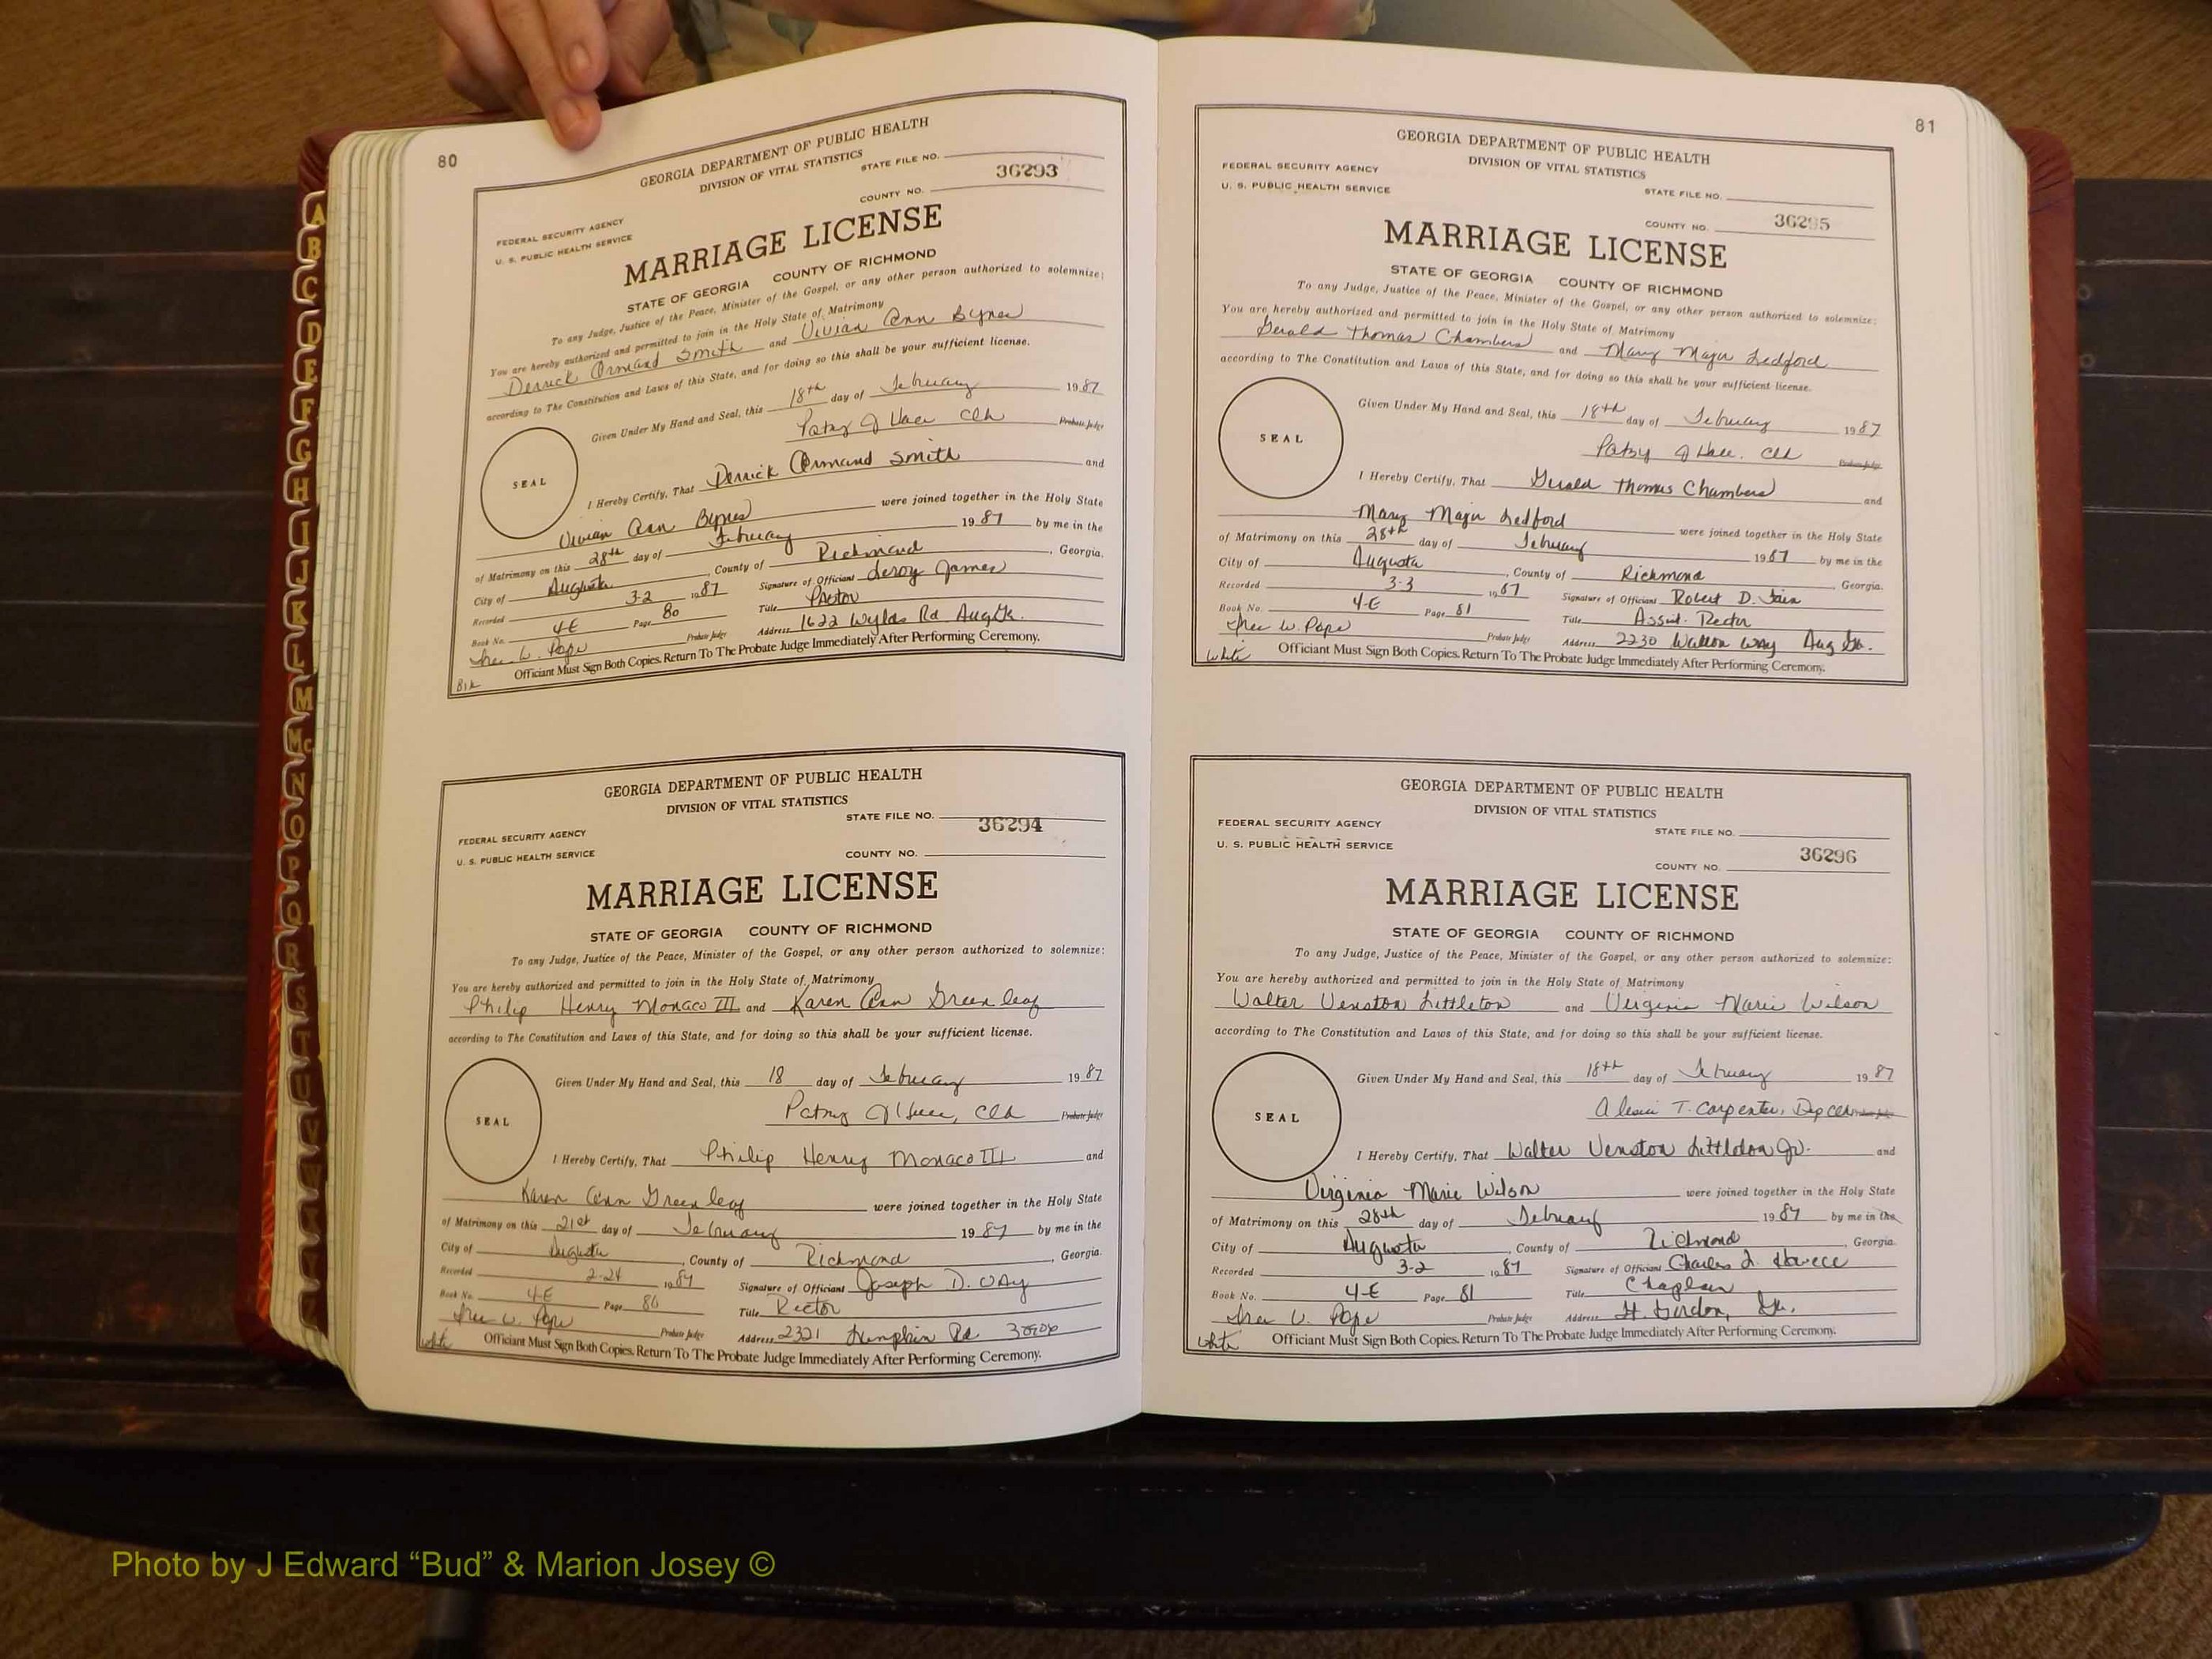 80
GEORGIA DEPARTMENT OF PUBLIC HEALTH
DIVISION OF VITAL STATISTICS
STATE FILE NO.
36293
COUNTY NO.
FEDERAL SECURITY AGENCY
U. S. PUBLIC HEALTH SERVICE
MARRIAGE LICENSE
STATE OF GEORGIA COUNTY OF RICHMOND
To any Judge, Justice of the Peace, Minister of the Gospel, or any other person authorized to solemnize:
You are hereby authorized and permitted to join in the Holy State of Matrimony
Derrick Ormand Smith and Vivian Ann Bynes
according to The Constitution and Laws of this State, and for doing so this shall be your sufficient license.
Given Under My Hand and Seal, this 18th day of February 1987
Patsy J Clk Probate Judge
SEAL
I Hereby Certify, That Derrick Ormand Smith and
Vivian Ann Bynes were joined together in the Holy State
of Matrimony on this 28th day of February 1987 by me in the
City of Augusta, County of Richmond, Georgia.
Recorded 3-2 1987 Signature of Officiant Leroy James
Book No. 4-E Page 80 Title Pastor
Probate Judge Address 1622 Wylds Rd Aug Ga.
W. Pope
Officiant Must Sign Both Copies. Return To The Probate Judge Immediately After Performing Ceremony.
Blk
GEORGIA DEPARTMENT OF PUBLIC HEALTH
DIVISION OF VITAL STATISTICS
STATE FILE NO. 36294
FEDERAL SECURITY AGENCY
U. S. PUBLIC HEALTH SERVICE
COUNTY NO.
MARRIAGE LICENSE
STATE OF GEORGIA COUNTY OF RICHMOND
To any Judge, Justice of the Peace, Minister of the Gospel, or any other person authorized to solemnize:
You are hereby authorized and permitted to join in the Holy State of Matrimony
Philip Henry Monaco III and Karen Ann Greenleaf
according to The Constitution and Laws of this State, and for doing so this shall be your sufficient license.
Given Under My Hand and Seal, this 18 day of February 1987
Patsy J Clk Probate Judge
SEAL
I Hereby Certify, That Philip Henry Monaco III and
Karen Ann Greenleaf were joined together in the Holy State
of Matrimony on this 21st day of February 1987 by me in the
City of Augusta, County of Richmond, Georgia.
Recorded 2-24 1987 Signature of Officiant Joseph D. Way
Book No. 4-E Page 80 Title Rector
W. Pope Probate Judge Address 2321 Lumpkin Rd 30906
White
Officiant Must Sign Both Copies. Return To The Probate Judge Immediately After Performing Ceremony.
81
GEORGIA DEPARTMENT OF PUBLIC HEALTH
DIVISION OF VITAL STATISTICS
FEDERAL SECURITY AGENCY
U. S. PUBLIC HEALTH SERVICE
STATE FILE NO.
COUNTY NO. 36295
MARRIAGE LICENSE
STATE OF GEORGIA COUNTY OF RICHMOND
To any Judge, Justice of the Peace, Minister of the Gospel, or any other person authorized to solemnize:
You are hereby authorized and permitted to join in the Holy State of Matrimony
Gerald Thomas Chambers and Mary Major Ledford
according to The Constitution and Laws of this State, and for doing so this shall be your sufficient license.
Given Under My Hand and Seal, this 18th day of February 1987
Patsy J Clk Probate Judge
SEAL
I Hereby Certify, That Gerald Thomas Chambers and
Mary Major Ledford were joined together in the Holy State
of Matrimony on this 28th day of February 1987 by me in the
City of Augusta, County of Richmond, Georgia.
Recorded 3-3 1987 Signature of Officiant Robert D. Fain
Book No. 4-E Page 81 Title Assist. Rector
W. Pope Probate Judge Address 2230 Walton Way Aug Ga.
White
Officiant Must Sign Both Copies. Return To The Probate Judge Immediately After Performing Ceremony.
GEORGIA DEPARTMENT OF PUBLIC HEALTH
DIVISION OF VITAL STATISTICS
FEDERAL SECURITY AGENCY
U. S. PUBLIC HEALTH SERVICE
STATE FILE NO.
36296
COUNTY NO.
MARRIAGE LICENSE
STATE OF GEORGIA COUNTY OF RICHMOND
To any Judge, Justice of the Peace, Minister of the Gospel, or any other person authorized to solemnize:
You are hereby authorized and permitted to join in the Holy State of Matrimony
Walter Venston Littleton and Virginia Marie Wilson
according to The Constitution and Laws of this State, and for doing so this shall be your sufficient license.
Given Under My Hand and Seal, this 18th day of February 1987
T. Carpenter, Dep Clk Probate Judge
SEAL
I Hereby Certify, That Walter Venston Littleton Jr. and
Virginia Marie Wilson were joined together in the Holy State
of Matrimony on this 28th day of February 1987 by me in the
City of Augusta, County of Richmond, Georgia.
Recorded 3-2 1987 Signature of Officiant Charles L.
Book No. 4-E Page 81 Title Chaplain
W. Pope Probate Judge Address Ft. Gordon, Ga.
White
Officiant Must Sign Both Copies. Return To The Probate Judge Immediately After Performing Ceremony.
A
B
C
D
E
F
G
H
I
J
K
L
M
Mc
N
O
P
Q
R
S
T
U
V
Photo by J Edward “Bud” & Marion Josey ©